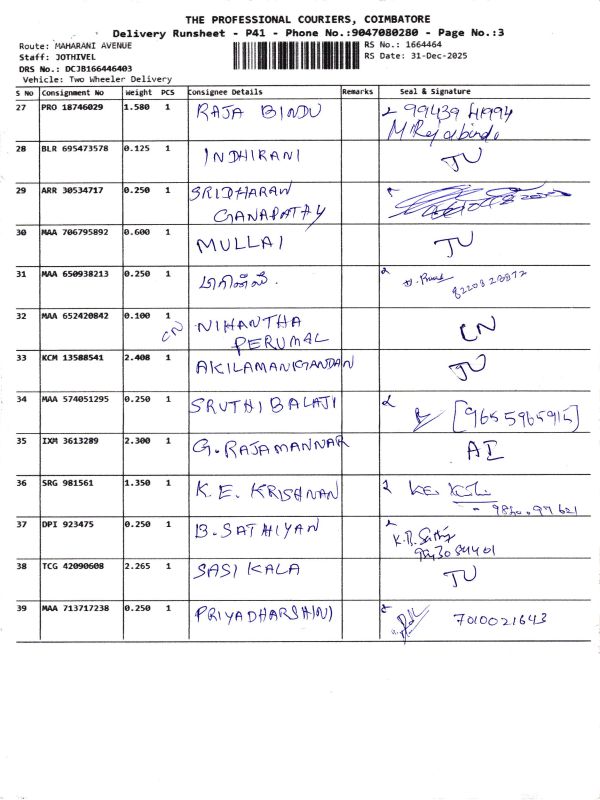 THE PROFESSIONAL COURIERS, COIMBATORE
Delivery Runsheet - P41 - Phone No.:9047080280 - Page No.:3
Route: MAHARANI AVENUE
RS No.: 1664464
Staff: JOTHIVEL
RS Date: 31-Dec-2025
DRS No.: DCJB166446403
Vehicle: Two Wheeler Delivery
S No Consignment No Weight PCS Consignee Details Remarks Seal & Signature
27 PRO 18746029 1.580 1 RAJA BINDU
28 BLR 695473578 0.125 1 INDHIRANI JU
29 ARR 30534717 0.250 1 SRIDHARAN
GANAPATHY
30 MAA 706795892 0.600 1 MULLAI JU
31 MAA 650938213 0.250 1
32 MAA 652420842 0.100 1 CN NIHANTHA CN
PERUMAL
33 KCM 13588541 2.408 1 AKILAMANIGANDAN JU
34 MAA 574051295 0.250 1 SRUTHI BALAJI [9655965915]
35 IXM 3613289 2.300 1 G.RAJAMANNAR AI
36 SRG 981561 1.350 1 K.E. KRISHNAN
37 DPI 923475 0.250 1 B.SATHIYAN
38 TCG 42090608 2.265 1 SASI KALA JU
39 MAA 713717238 0.250 1 PRIYADHARSHINI 7010021643